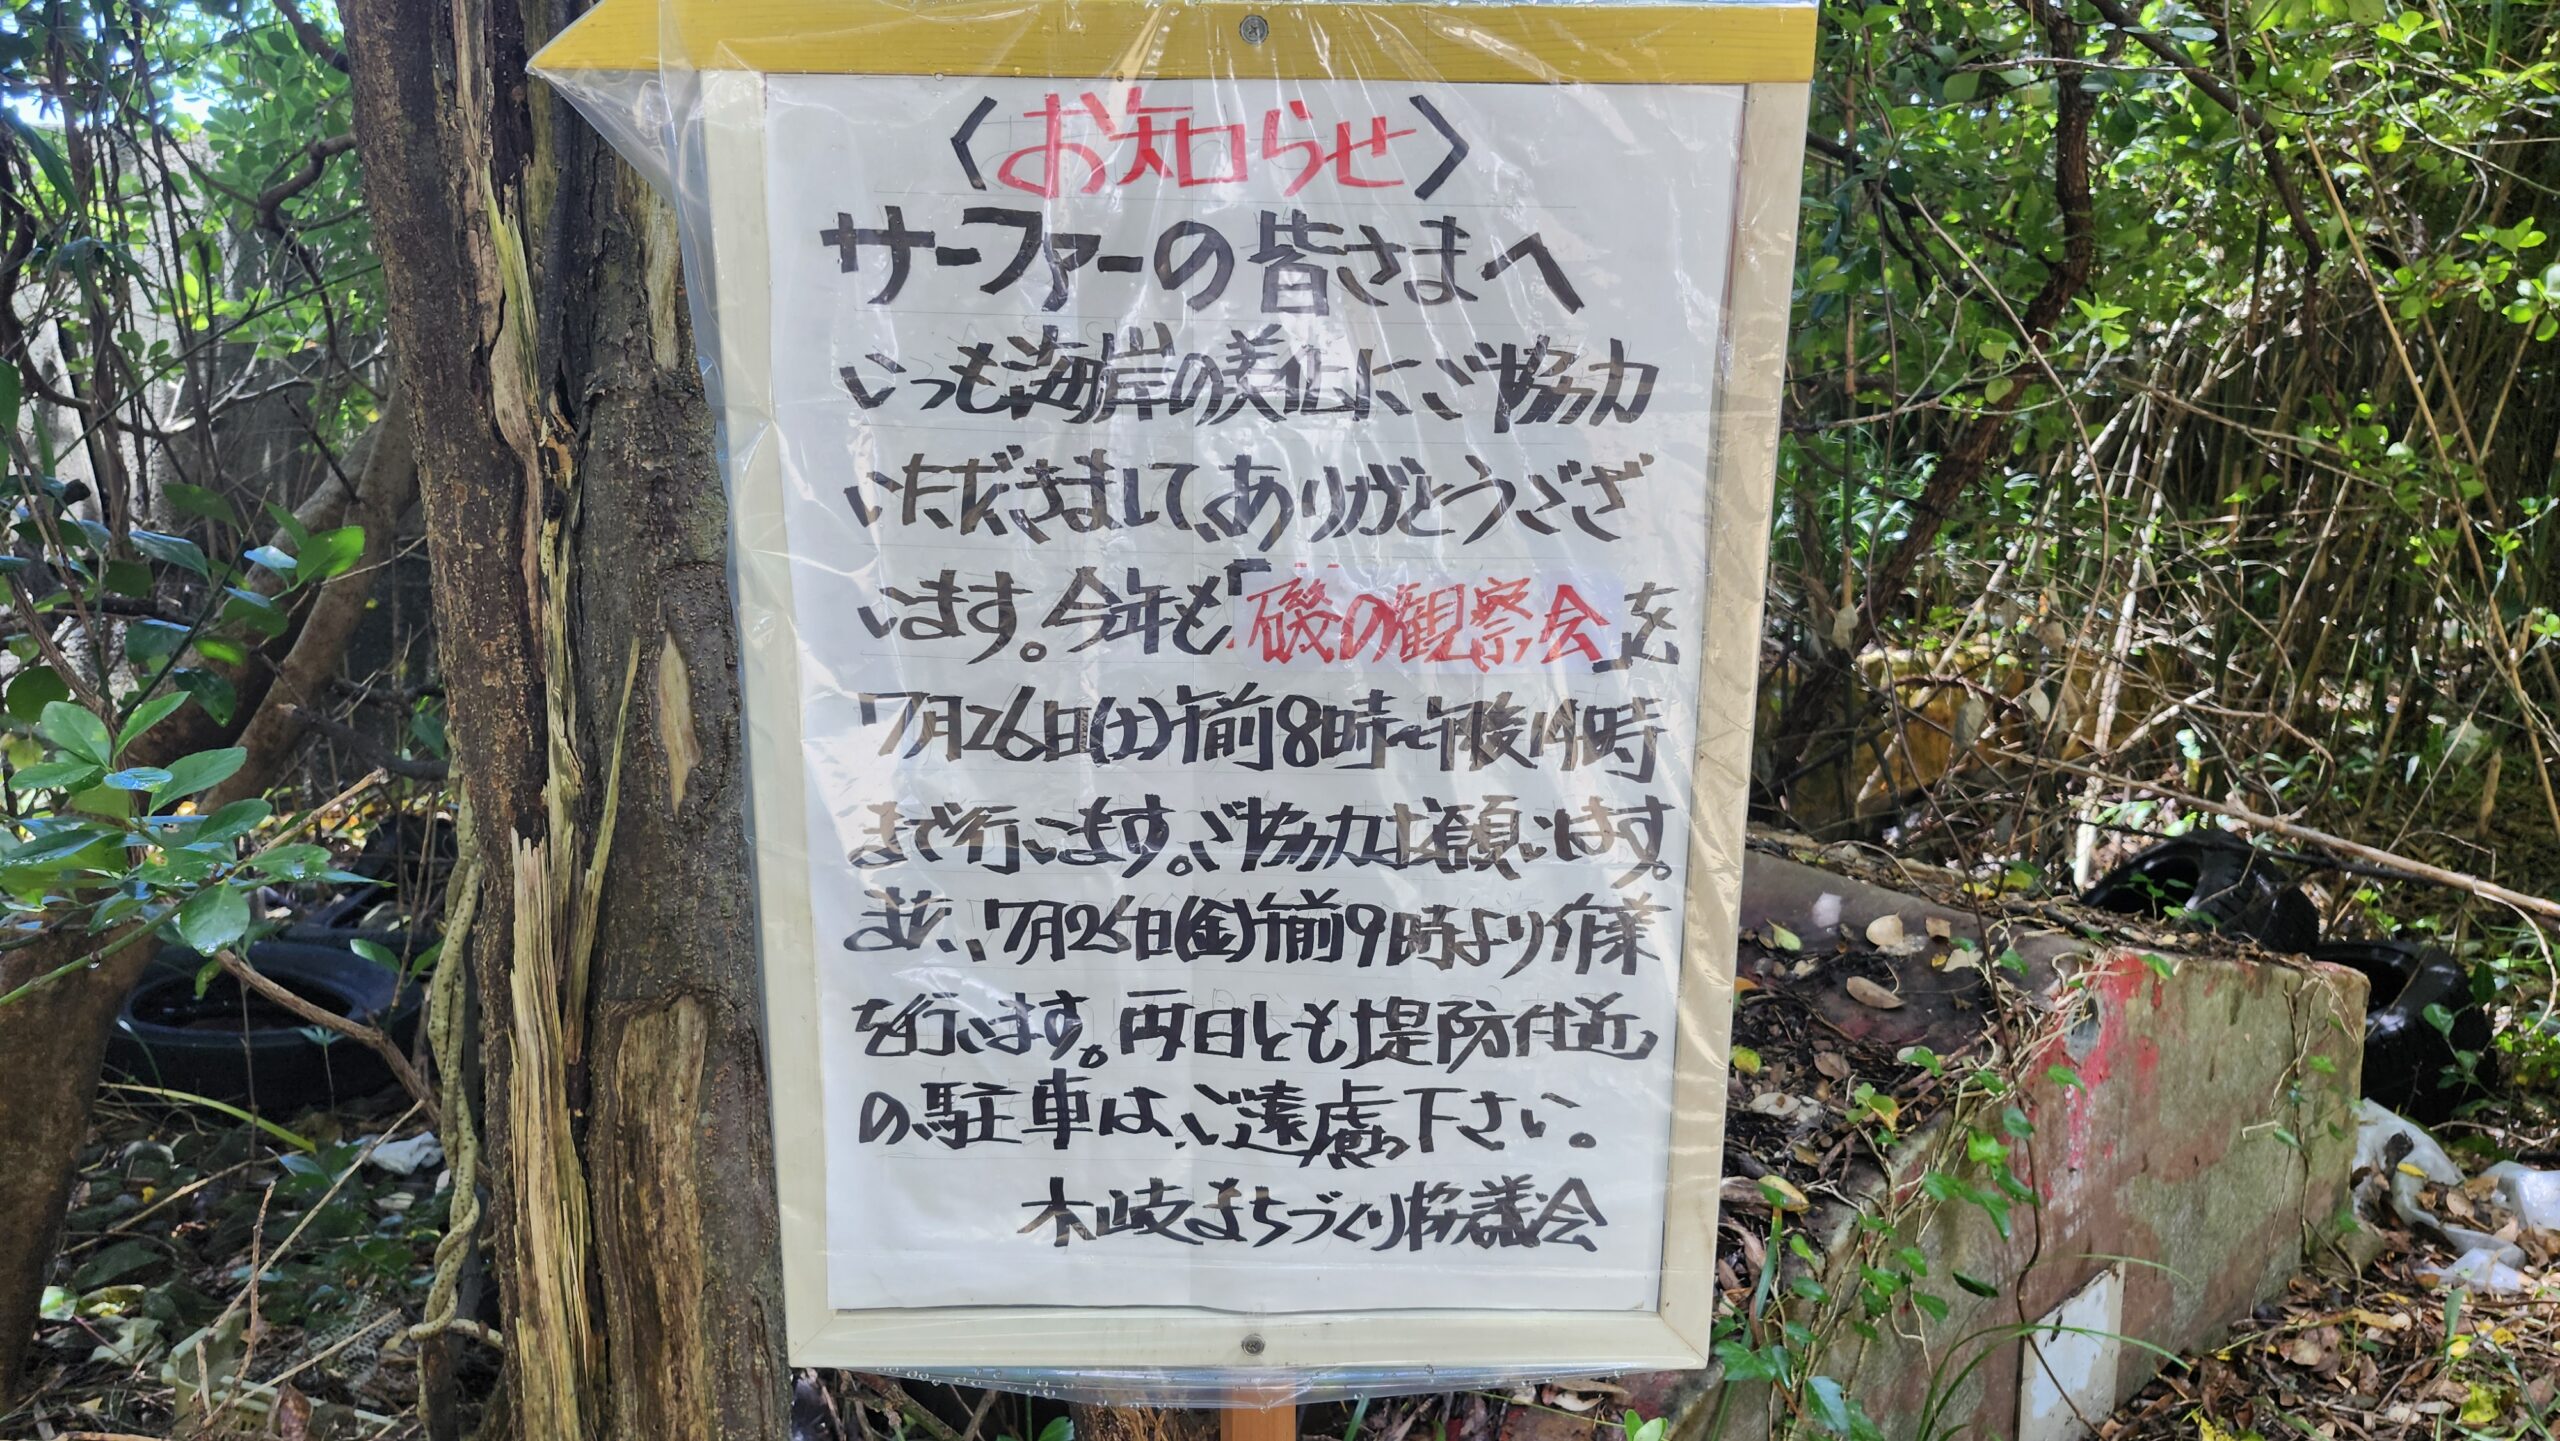 〈お知らせ〉
サーファーの皆さまへ
いつも海岸の美化にご協力
いただきまして、ありがとうござ
います。今年も「磯の観察会」を
7月26日(土)午前8時〜午後 時
まで行います。ご協力お願いします。
また、7月25日(金)午前9時より作業
を行います。両日とも堤防付近
の駐車は、ご遠慮下さい。
木岐まちづくり協議会